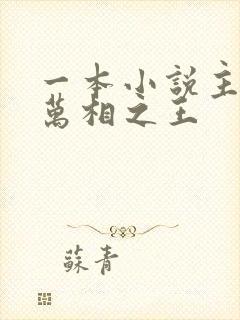 一本小說主
萬相之王
蘇青